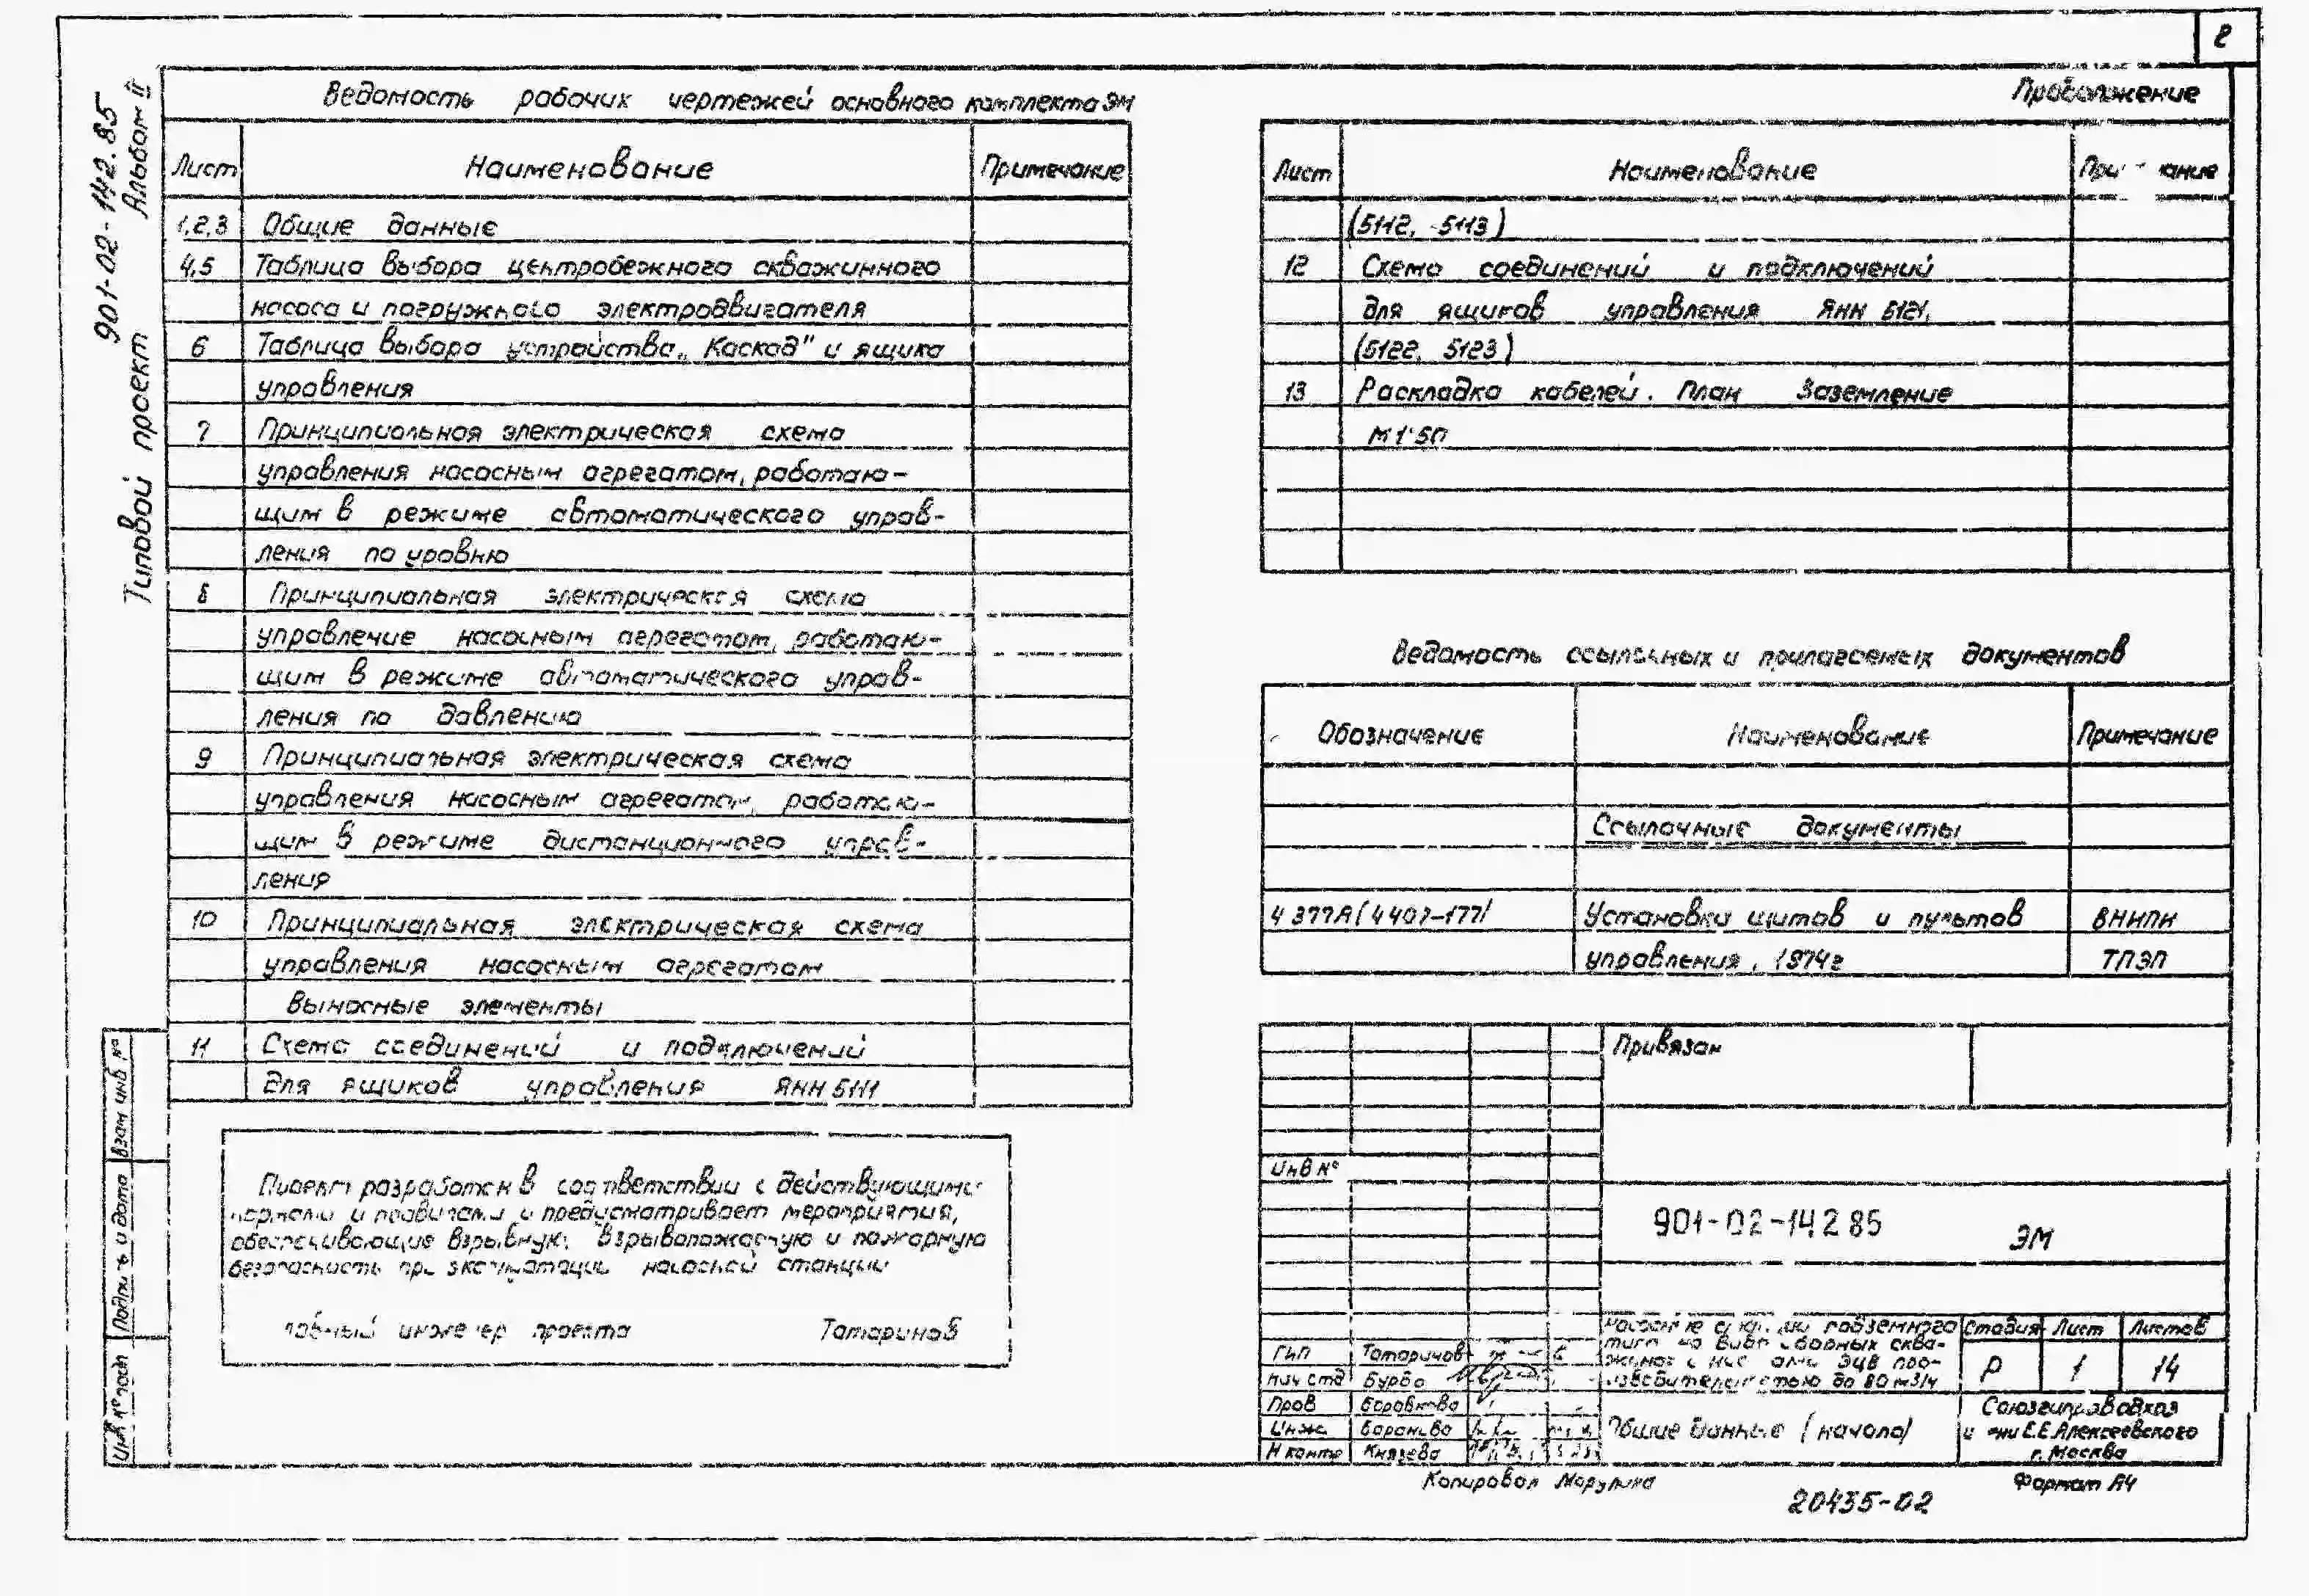 2
Типовой проект 901-02-142.85 Альбом II
Ведомость рабочих чертежей основного комплекта ЭМ
Лист Наименование Примечание
1,2,3 Общие данные
4,5 Таблица выбора центробежного скважинного
насоса и погружного электродвигателя
6 Таблица выбора устройства „Каскад" и ящика
управления
7 Принципиальная электрическая схема
управления насосным агрегатом, работаю-
щим в режиме автоматического управ-
ления по уровню
8 Принципиальная электрическая схема
управление насосным агрегатом, работаю-
щим в режиме автоматического управ-
ления по давлению
9 Принципиальная электрическая схема
управления насосным агрегатом, работаю-
щим в режиме дистанционного управ-
ления
10 Принципиальная электрическая схема
управления насосным агрегатом
Выносные элементы
11 Схема соединений и подключений
для ящиков управления ЯНН 5111
Проект разработан в соответствии с действующими
нормами и правилами и предусматривает мероприятия,
обеспечивающие взрывную, взрывопожарную и пожарную
безопасность при эксплуатации насосной станции
инженер проекта Татаринов
Взам инв №
Подпись и дата
Инв № подл
Продолжение
Лист Наименование
(5112, 5113)
12 Схема соединений и подключений
для ящиков управления ЯНН 5121,
(5122, 5123)
13 Раскладка кабелей. План Заземление
М 1:50
Ведомость ссылочных и прилагаемых документов
Обозначение Наименование Примечание
Ссылочные документы
4.377А (4407-177) Установки щитов и пультов ВНИПИ
управления, 1974г ТПЭП
Привязан
Инв №
901-02-142 85 ЭМ
подземного
ЭЦВ про-
изводительностью до 80 м3/ч
Стадия Лист Листов
Р 1 14
ГИП Татаринов
Нач отд Бурба
Пров Боровкова
Инж. Баранова
Н контр Князева
Общие данные (начало)
Союзгипроводхоз
Е.Е.Алексеевского
г. Москва
Копировал Формат А4
20435-02